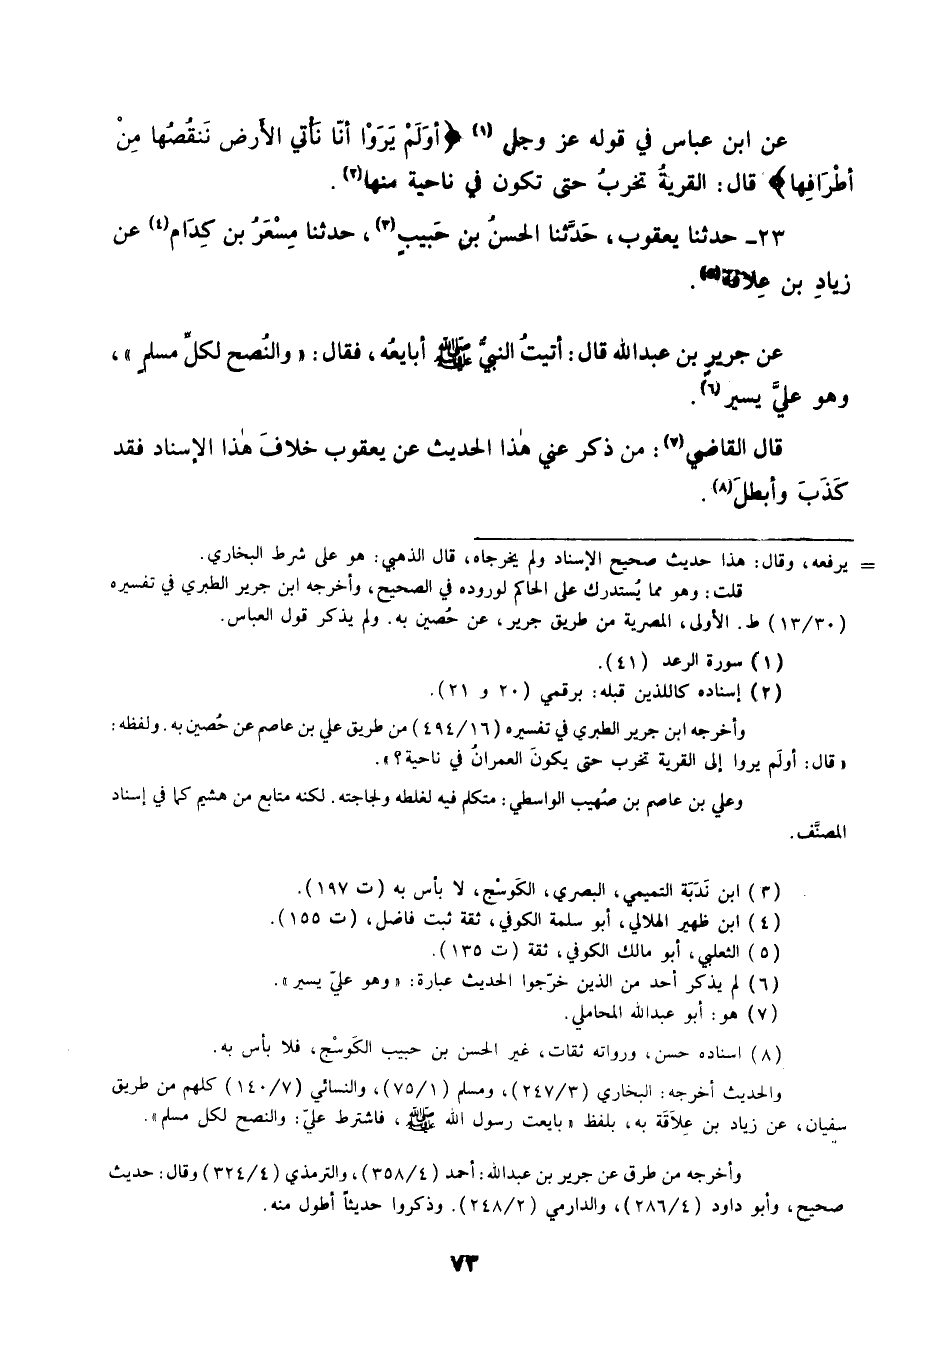 عن ابن عباس في قوله عز وجل (١) ﴿أوَلَمْ يَرَوْا أنّا نَأتي الأَرض نَنقُصُها مِنْ
أطْرَافِها﴾ قال: القريةُ تخربُ حتى تكون في ناحية منها(٢).
٢٣ـ حدثنا يعقوب، حَدَّثنا الحسنُ بنِ حَبيبٍ(٣)، حدثنا مِسْعَرُ بن كِدَام(٤) عن
زيادِ بن عِلاقَة(٥).
عن جريرٍ بن عبدالله قال: أتيتُ النبيَّ ﷺ أبايعُه، فقال: «والنُصح لكلِّ مسلمٍ»،
وهو عليَّ يسير(٦).
قال القاضي(٧): من ذكر عني هٰذا الحديث عن يعقوب خلافَ هٰذا الإسناد فقد
كَذَبَ وأبطلَ(٨).
= يرفعه، وقال: هذا حديث صحيح الإسناد ولم يخرجاه، قال الذهبي: هو على شرط البخاري.
قلت: وهو مما يُستدرك على الحاكم لوروده في الصحيح، وأخرجه ابن جرير الطبري في تفسيره
(١٣/٣٠) ط. الأولى، المصرية من طريق جرير، عن حُصين به. ولم يذكر قول العباس.
(١) سورة الرعد (٤١).
(٢) إسناده كاللذين قبله: برقمي (٢٠ و ٢١).
وأخرجه ابن جرير الطبري في تفسيره (٤٩٤/١٦) من طريق علي بن عاصم عن حُصين به. ولفظه:
«قال: أولَم يروا إلى القرية تخرب حتى يكونَ العمرانُ في ناحية؟».
وعلي بن عاصم بن صُهيب الواسطي: متكلم فيه لغلطه ولجاجته. لكنه متابع من هشيم كما في إسناد
المصنَّف.
(٣) ابن نَدَبَة التميمي، البصري، الكَوسْج، لا بأس به (ت ١٩٧).
(٤) ابن ظهير الهلالي، أبو سلمة الكوفي، ثقة ثبت فاضل، (ت ١٥٥).
(٥) الثعلبي، أبو مالك الكوفي، ثقة (ت ١٣٥).
(٦) لم يذكر أحد من الذين خرّجوا الحديث عبارة: «وهو عليّ يسير».
(٧) هو: أبو عبدالله المحاملي.
(٨) اسناده حسن، ورواته ثقات، غير الحسن بن حبيب الكَوسْج، فلا بأس به.
والحديث أخرجه: البخاري (٢٤٧/٣)، ومسلم (٧٥/١)، والنسائي (١٤٠/٧) كلهم من طريق
سفيان، عن زياد بن عِلاَقَة به، بلفظ «بايعت رسول الله ﷺ، فاشترط عليّ: والنصح لكل مسلم».
وأخرجه من طرق عن جرير بن عبدالله: أحمد (٣٥٨/٤)، والترمذي (٣٢٤/٤) وقال: حديث
صحيح، وأبو داود (٢٨٦/٤)، والدارمي (٢٤٨/٢). وذكروا حديثاً أطول منه.
٧٣